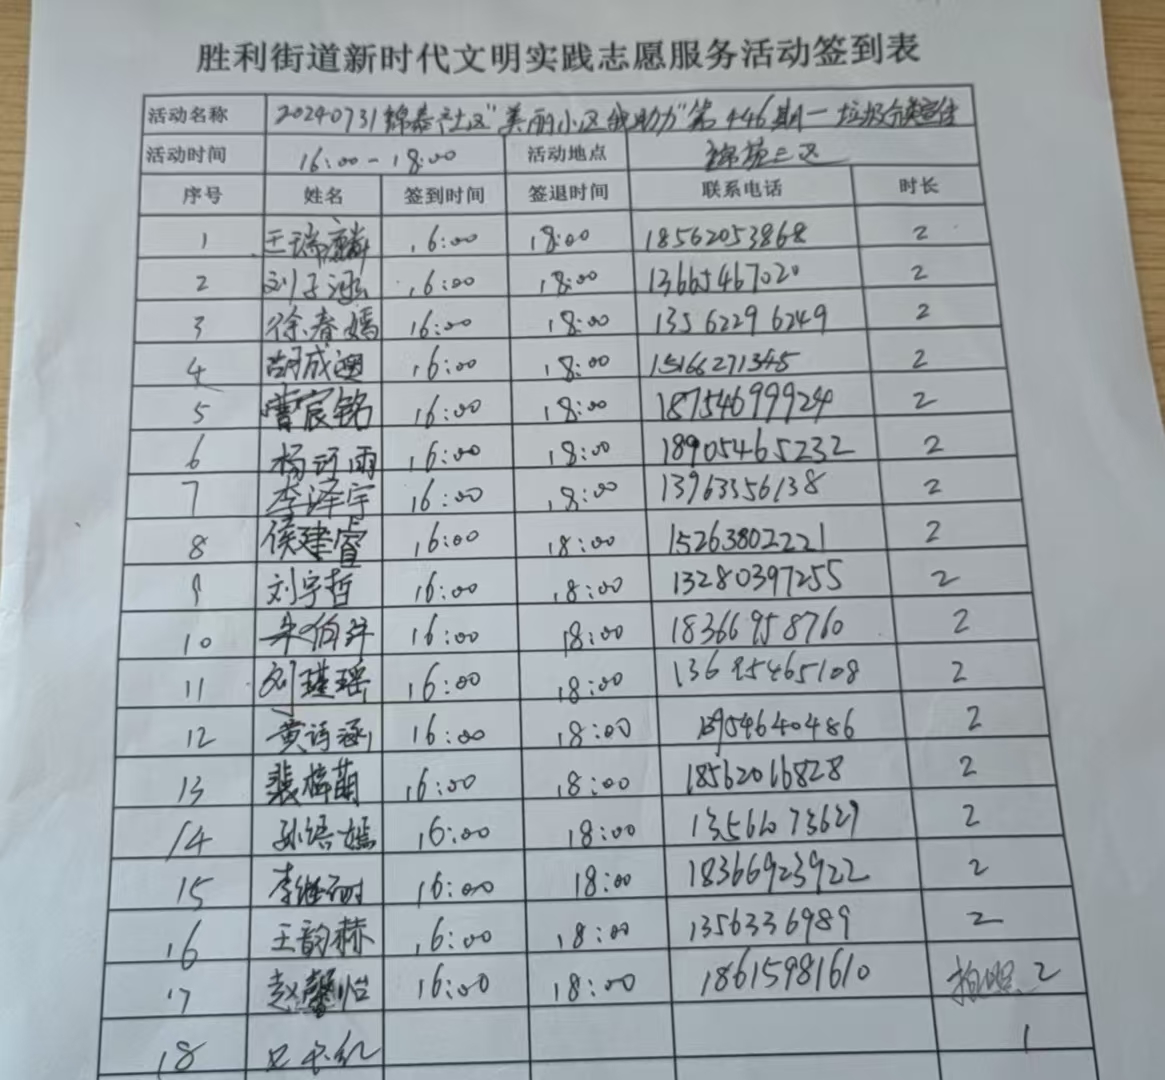 胜利街道新时代文明实践志愿服务活动签到表
活动名称 20240731锦泰社区"美丽小区我助力"第446期—垃圾分类宣传
活动时间 16:00-18:00 活动地点 锦苑三区
序号 姓名 签到时间 签退时间 联系电话 时长
1 王瑞麟 16:00 18:00 18562053868 2
2 刘子涵 16:00 18:00 13665467020 2
3 徐春嫣 16:00 18:00 13562296249 2
4 胡成迪 16:00 18:00 15166271345 2
5 曹宸铭 16:00 18:00 18754699924 2
6 杨雨 16:00 18:00 18905465232 2
7 李泽宇 16:00 18:00 13963356138 2
8 侯建睿 16:00 18:00 15263802221 2
9 刘宇哲 16:00 18:00 13280397255 2
10 16:00 18:00 18366958760 2
11 刘瑾瑶 16:00 18:00 13695465108 2
12 黄诗涵 16:00 18:00 13954640486 2
13 裴梓萌 16:00 18:00 18562016828 2
14 孙语嫣 16:00 18:00 13561073629 2
15 李继 16:00 18:00 18366923922 2
16 王韵赫 16:00 18:00 1356336989 2
17 赵馨怡 16:00 18:00 18615981610 拍照、2
18 1